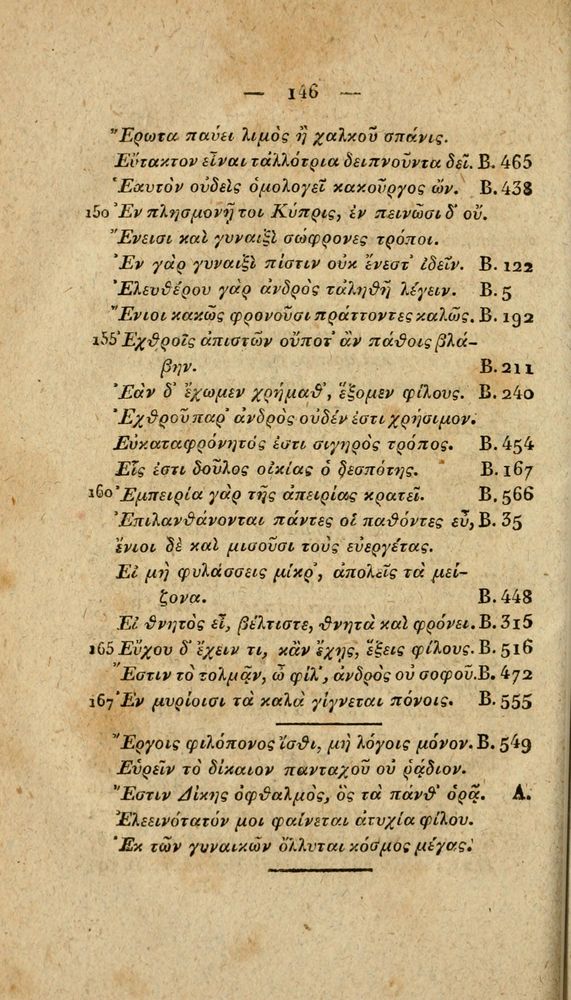 — 146 —
Ἔρωτα παύει λιμὸς ἢ χαλκοῦ σπάνις.
Εὔτακτον εἶναι τἀλλότρια δειπνοῦντα δεῖ. B. 465
Ἑαυτὸν οὐδεὶς ὁμολογεῖ κακοῦργος ὤν. B. 438
150 Ἐν πλησμονῇ τοι Κύπρις, ἐν πεινῶσι δ' οὔ.
Ἔνεισι καὶ γυναιξὶ σώφρονες τρόποι.
Ἐν γὰρ γυναιξὶ πίστιν οὐκ ἔνεστ' ἰδεῖν. B. 122
Ἐλευθέρου γὰρ ἀνδρὸς τἀληθῆ λέγειν. B. 5
Ἔνιοι κακῶς φρονοῦσι πράττοντες καλῶς. B. 192
155 Ἐχθροῖς ἀπιστῶν οὔποτ' ἂν πάθοις βλά-
βην. B. 211
Ἐὰν δ' ἔχωμεν χρήμαθ', ἕξομεν φίλους. B. 240
Ἐχθροῦ παρ' ἀνδρὸς οὐδέν ἐστι χρήσιμον.
Εὐκαταφρόνητός ἐστι σιγηρὸς τρόπος. B. 454
Εἷς ἐστι δοῦλος οἰκίας ὁ δεσπότης. B. 167
160 Ἐμπειρία γὰρ τῆς ἀπειρίας κρατεῖ. B. 566
Ἐπιλανθάνονται πάντες οἱ παθόντες εὖ, B. 35
ἔνιοι δὲ καὶ μισοῦσι τοὺς εὐεργέτας.
Εἰ μὴ φυλάσσεις μίκρ', ἀπολεῖς τὰ μεί-
ζονα. B. 448
Εἰ θνητὸς εἶ, βέλτιστε, θνητὰ καὶ φρόνει. B. 315
165 Εὔχου δ' ἔχειν τι, κἂν ἔχῃς, ἕξεις φίλους. B. 516
Ἔστιν τὸ τολμᾷν, ὦ φίλ', ἀνδρὸς οὐ σοφοῦ. B. 472
167 Ἐν μυρίοισι τὰ καλὰ γίγνεται πόνοις. B. 555
Ἔργοις φιλόπονος ἴσθι, μὴ λόγοις μόνον. B. 549
Εὑρεῖν τὸ δίκαιον πανταχοῦ οὐ ῥᾴδιον.
Ἔστιν Δίκης ὀφθαλμὸς, ὃς τὰ πάνθ' ὁρᾷ. A.
Ἐλεεινότατόν μοι φαίνεται ἀτυχία φίλου.
Ἐκ τῶν γυναικῶν ὄλλυται κόσμος μέγας.